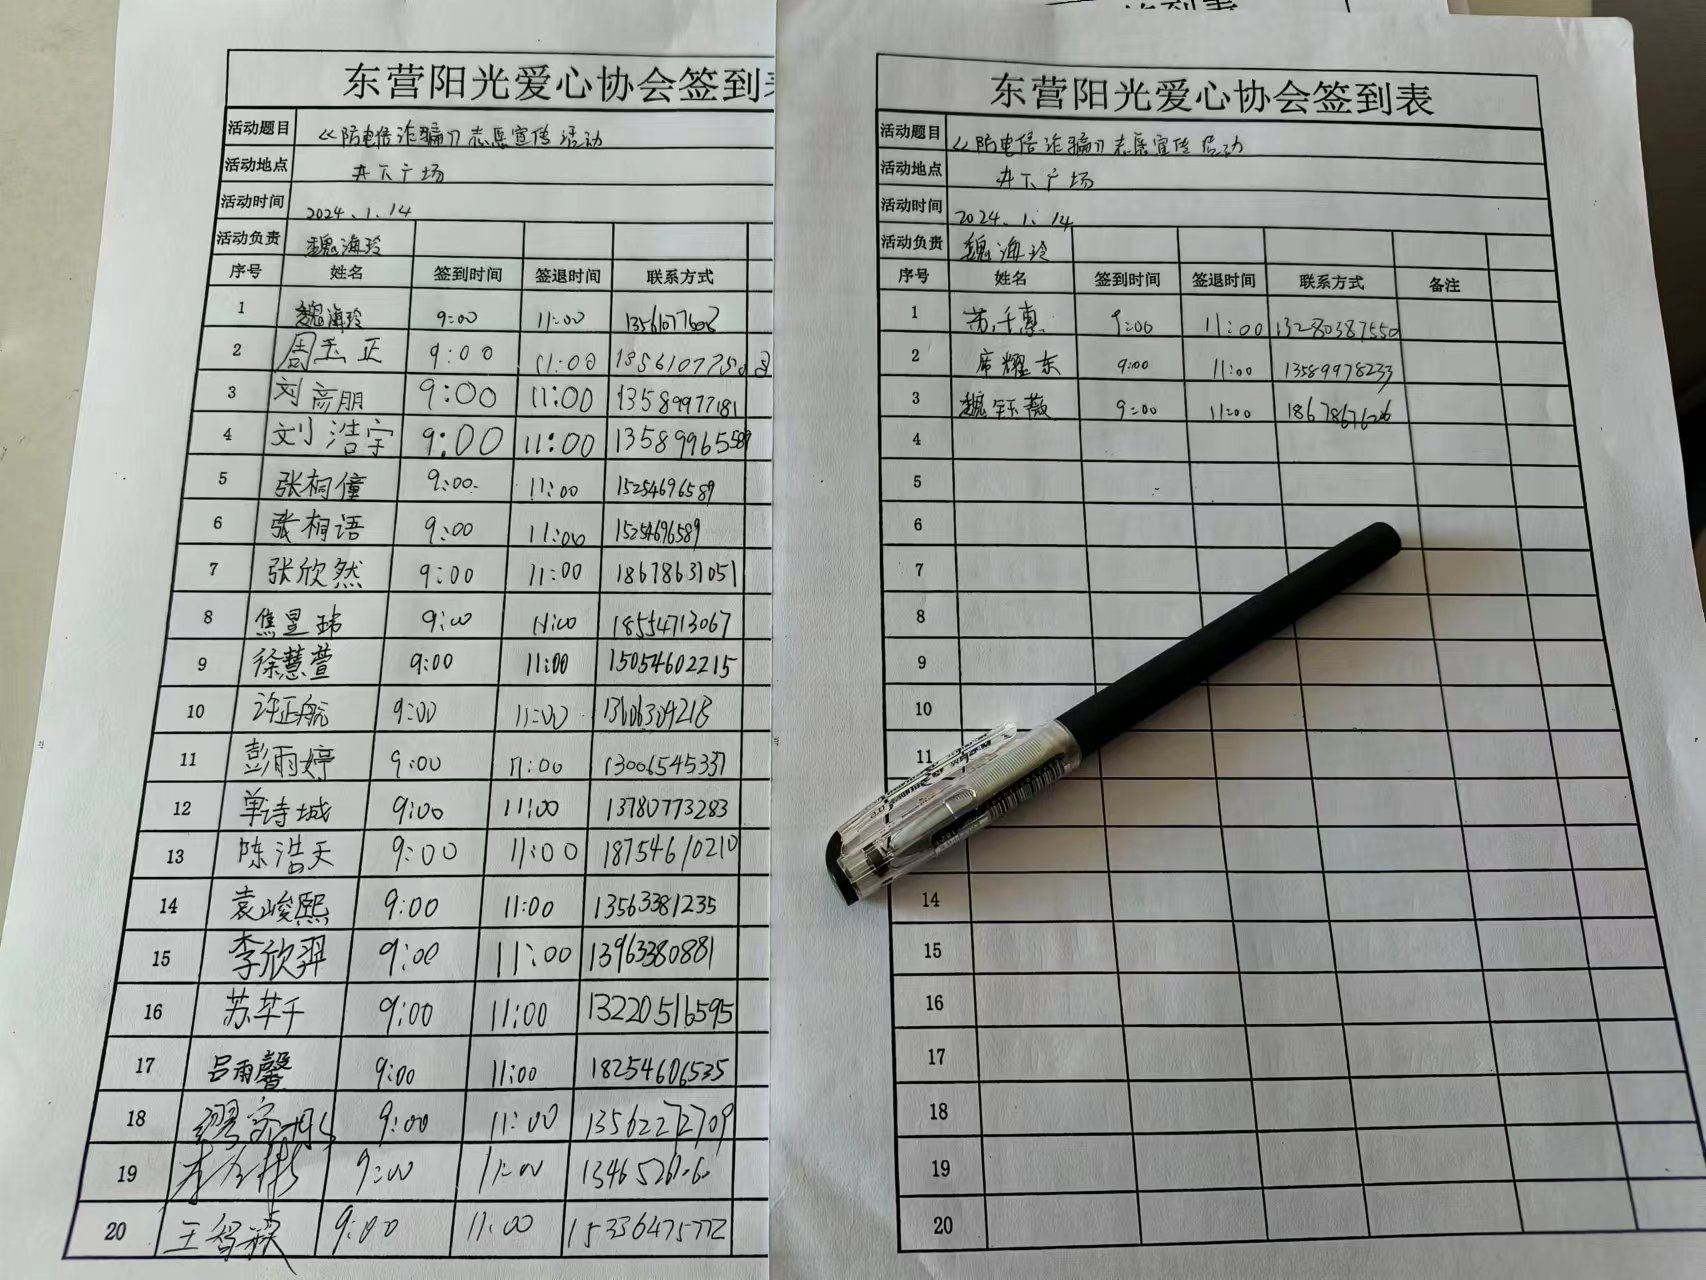 东营阳光爱心协会签到
活动题目 《防电信诈骗》志愿宣传活动
活动地点 井下广场
活动时间 2024.1.14
活动负责 魏海玲
序号 姓名 签到时间 签退时间 联系方式
1 魏海玲 9:00 11:00
2 周玉正 9:00 11:00
3 刘彦朋 9:00 11:00 13589977181
4 刘浩宇 9:00 11:00 13589965589
5 张桐僮 9:00 11:00 15254696589
6 张桐语 9:00 11:00 15254696589
7 张欣然 9:00 11:00 18678631051
8 焦昱玮 9:00 11:00 18554713067
9 徐慧萱 9:00 11:00 15054602215
10 许正航 9:00 11:00 13606304218
11 彭雨婷 9:00 11:00 13006545337
12 单诗城 9:00 11:00 13780773283
13 陈浩天 9:00 11:00 18754610210
14 袁峻熙 9:00 11:00 13563381235
15 李欣羿 9:00 11:00 13963380881
16 苏芊千 9:00 11:00 13220516595
17 吕雨馨 9:00 11:00 18254606535
18 9:00 11:00 13562272709
19 9:00 11:00
20 王智禛 9:00 11:00 15336475772
东营阳光爱心协会签到表
活动题目 《防电信诈骗》志愿宣传活动
活动地点 井下广场
活动时间 2024.1.14
活动负责 魏海玲
序号 姓名 签到时间 签退时间 联系方式 备注
1 苏千惠 9:00 11:00 13280387550
2 席耀东 9:00 11:00 13589978233
3 魏钰薇 9:00 11:00
4
5
6
7
8
9
10
11
14
15
16
17
18
19
20